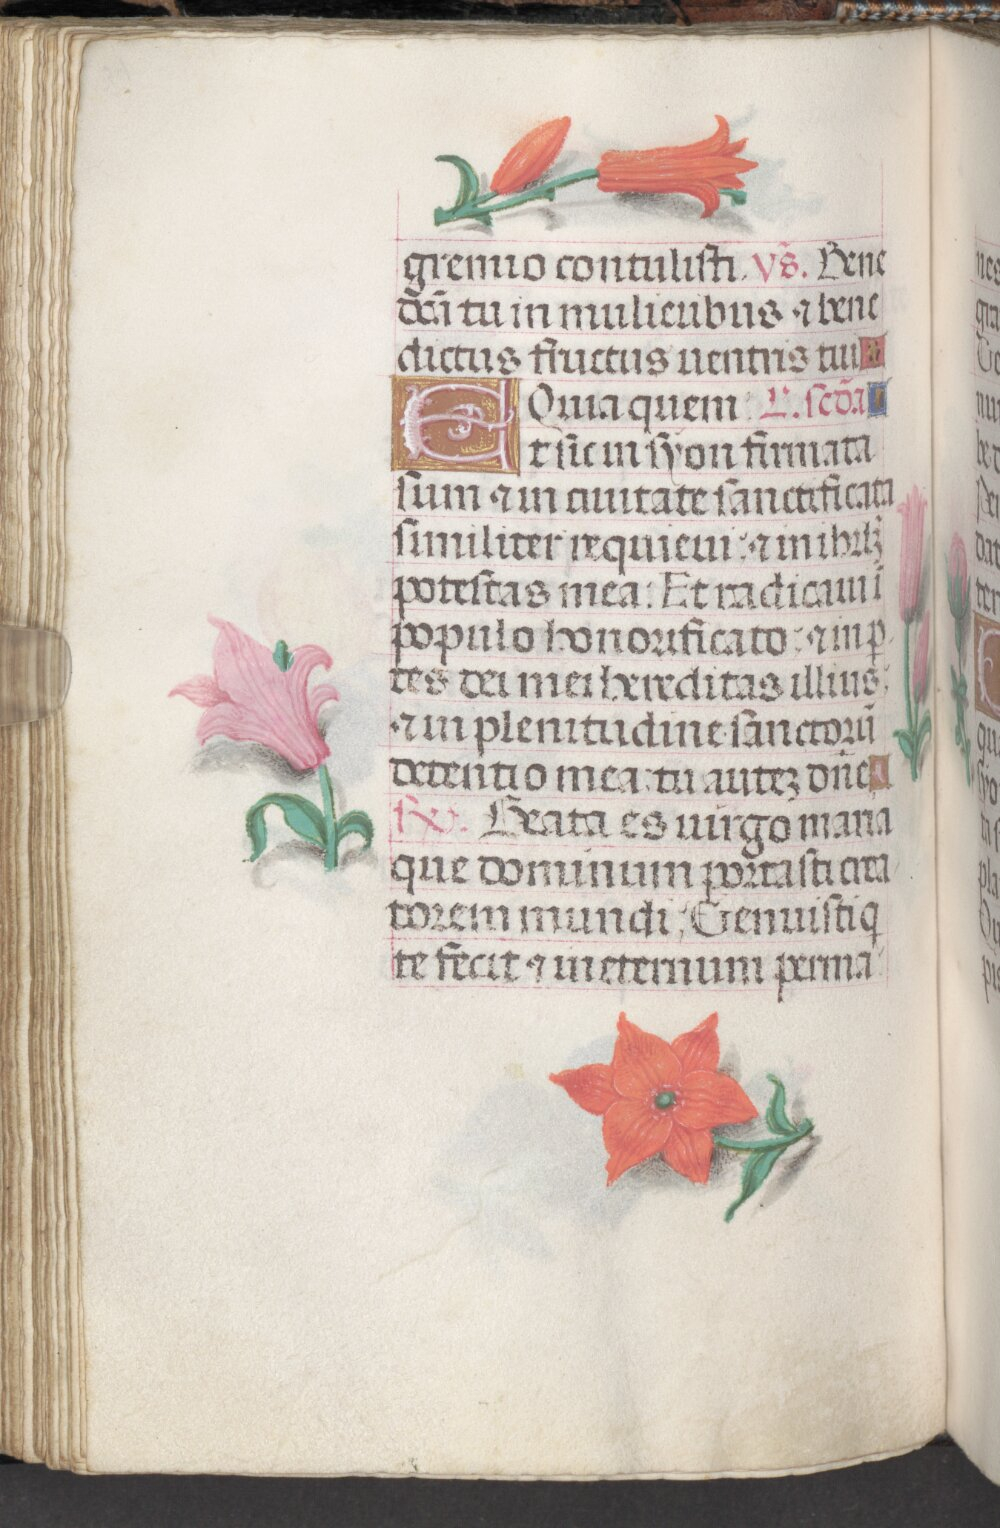 gremio contulisti. Vs̃. Bene
dc̃ã tu in mulieribus ⁊ bene
dictus fructus uentris tui
Quia quem L. scđa
Et sic in syon firmata
sum ⁊ in ciuitate sanctificata
similiter requieui: ⁊ in ihrlꝫ
potestas mea: Et radicaui ĩ
populo honorificato: ⁊ in p
tes dei mei hereditas illius:
⁊ in plenitudine sanctorũ
detentio mea: tu auteꝫ dñe
Rx. Beata es uirgo maria
que dominum portasti crea
torem mundi: Genuisti q
te fecit ⁊ in eternum perma